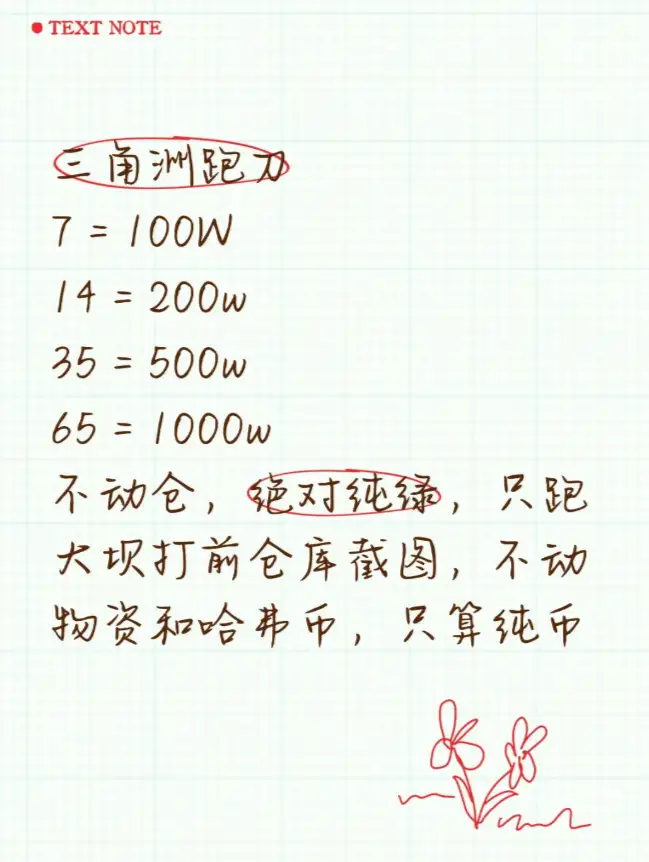 TEXT NOTE
三角洲跑刀
7 = 100W
14 = 200w
35 = 500w
65 = 1000w
不动仓，绝对纯绿，只跑
大坝打前仓库截图，不动
物资和哈弗币，只算纯币